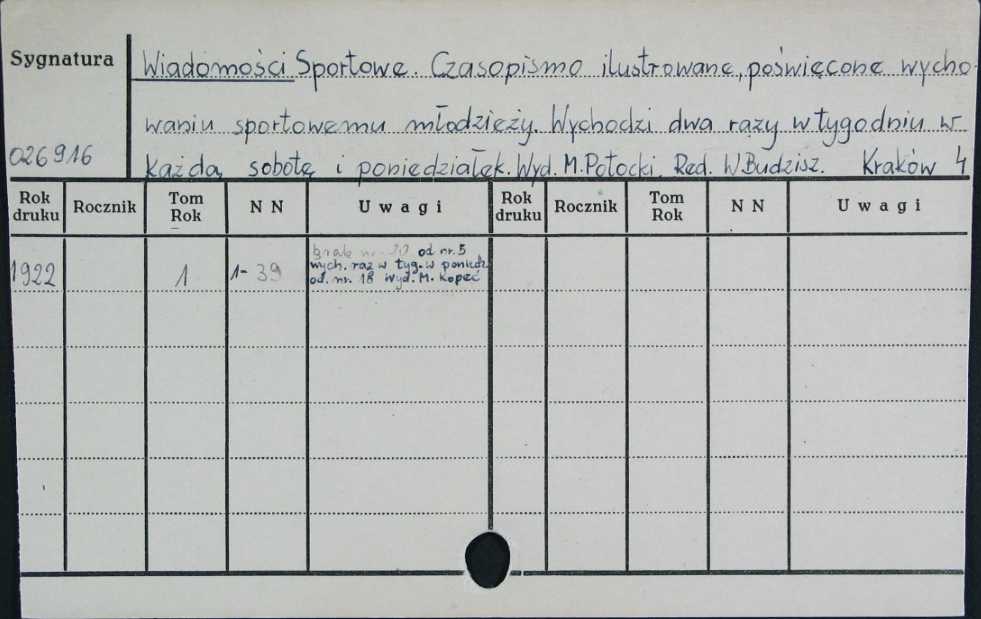 Sygnatura
Wiadomości Sportowe. Czasopismo ilustrowane, poświęcone wycho-
waniu sportowemu młodzieży. Wychodzi dwa razy w tygodniu w
026916
każdą sobotę i poniedziałek. Wyd. M. Potocki. Red. W. Budzisz. Kraków 4
Rok druku Rocznik Tom Rok NN Uwagi Rok druku Rocznik Tom Rok NN Uwagi
brak nr. od nr. 5
1922 1 1-39 wych. raz w tyg. w poniedz
od. nr. 18 wyd. M. Kopeć